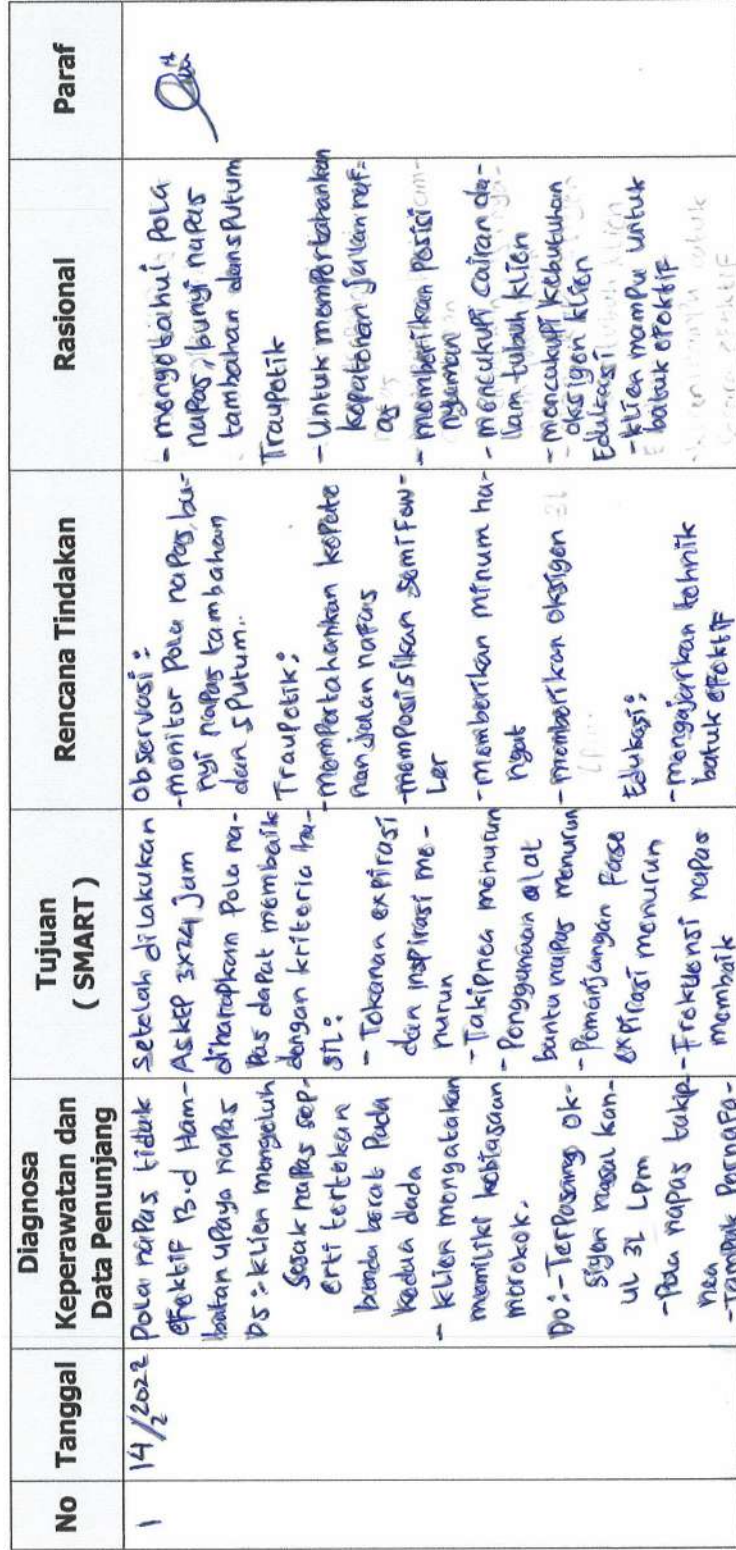 No
Tanggal
Diagnosa
Keperawatan dan
Data Penunjang
Tujuan
( SMART )
Rencana Tindakan
Rasional
Paraf
1
14/2 2022
Pola napas tidak
efektif B.d Ham-
batan upaya napas
DS :- Klien mengeluh
sesak napas sep-
erti tertekan
benda berat pada
kedua dada
- Klien mengatakan
memiliki kebiasaan
merokok.
DO :- Terpasang ok-
sigen nasal kan-
ul 3L Lpm
- Pola napas takip-
nea
- Tampak Pernafa-
Setelah dilakukan
ASKEP 3x24 jam
diharapkan Pola na-
pas dapat membaik
dengan kriteria ha-
sil :
- Tekanan expirasi
dan inspirasi me-
nurun
- Takipnea menurun
- Penggunaan alat
bantu napas menurun
- Pemanjangan Fase
expirasi menurun
- Frekuensi napas
membaik
observasi :
- monitor Pola napas, bu-
nyi napas tambahan
dan sputum.
Traupetik :
- mempertahankan kepate
nan jalan nafas
- memposisikan semi Fow-
Ler
- memberikan minum ha-
ngat
- memberikan oksigen 3L
LPM
Edukasi :
- mengajarkan tehnik
batuk efektif
- mengetahui Pola
napas, bunyi napas
tambahan dan sputum
Traupetik
- Untuk mempertahankan
kepatenan jalan naf-
as
- memberikan posisi
nyaman
- mencukupi cairan da-
lam tubuh klien
- mencukupi kebutuhan
oksigen klien
Edukasi
- klien mampu untuk
batuk efektif